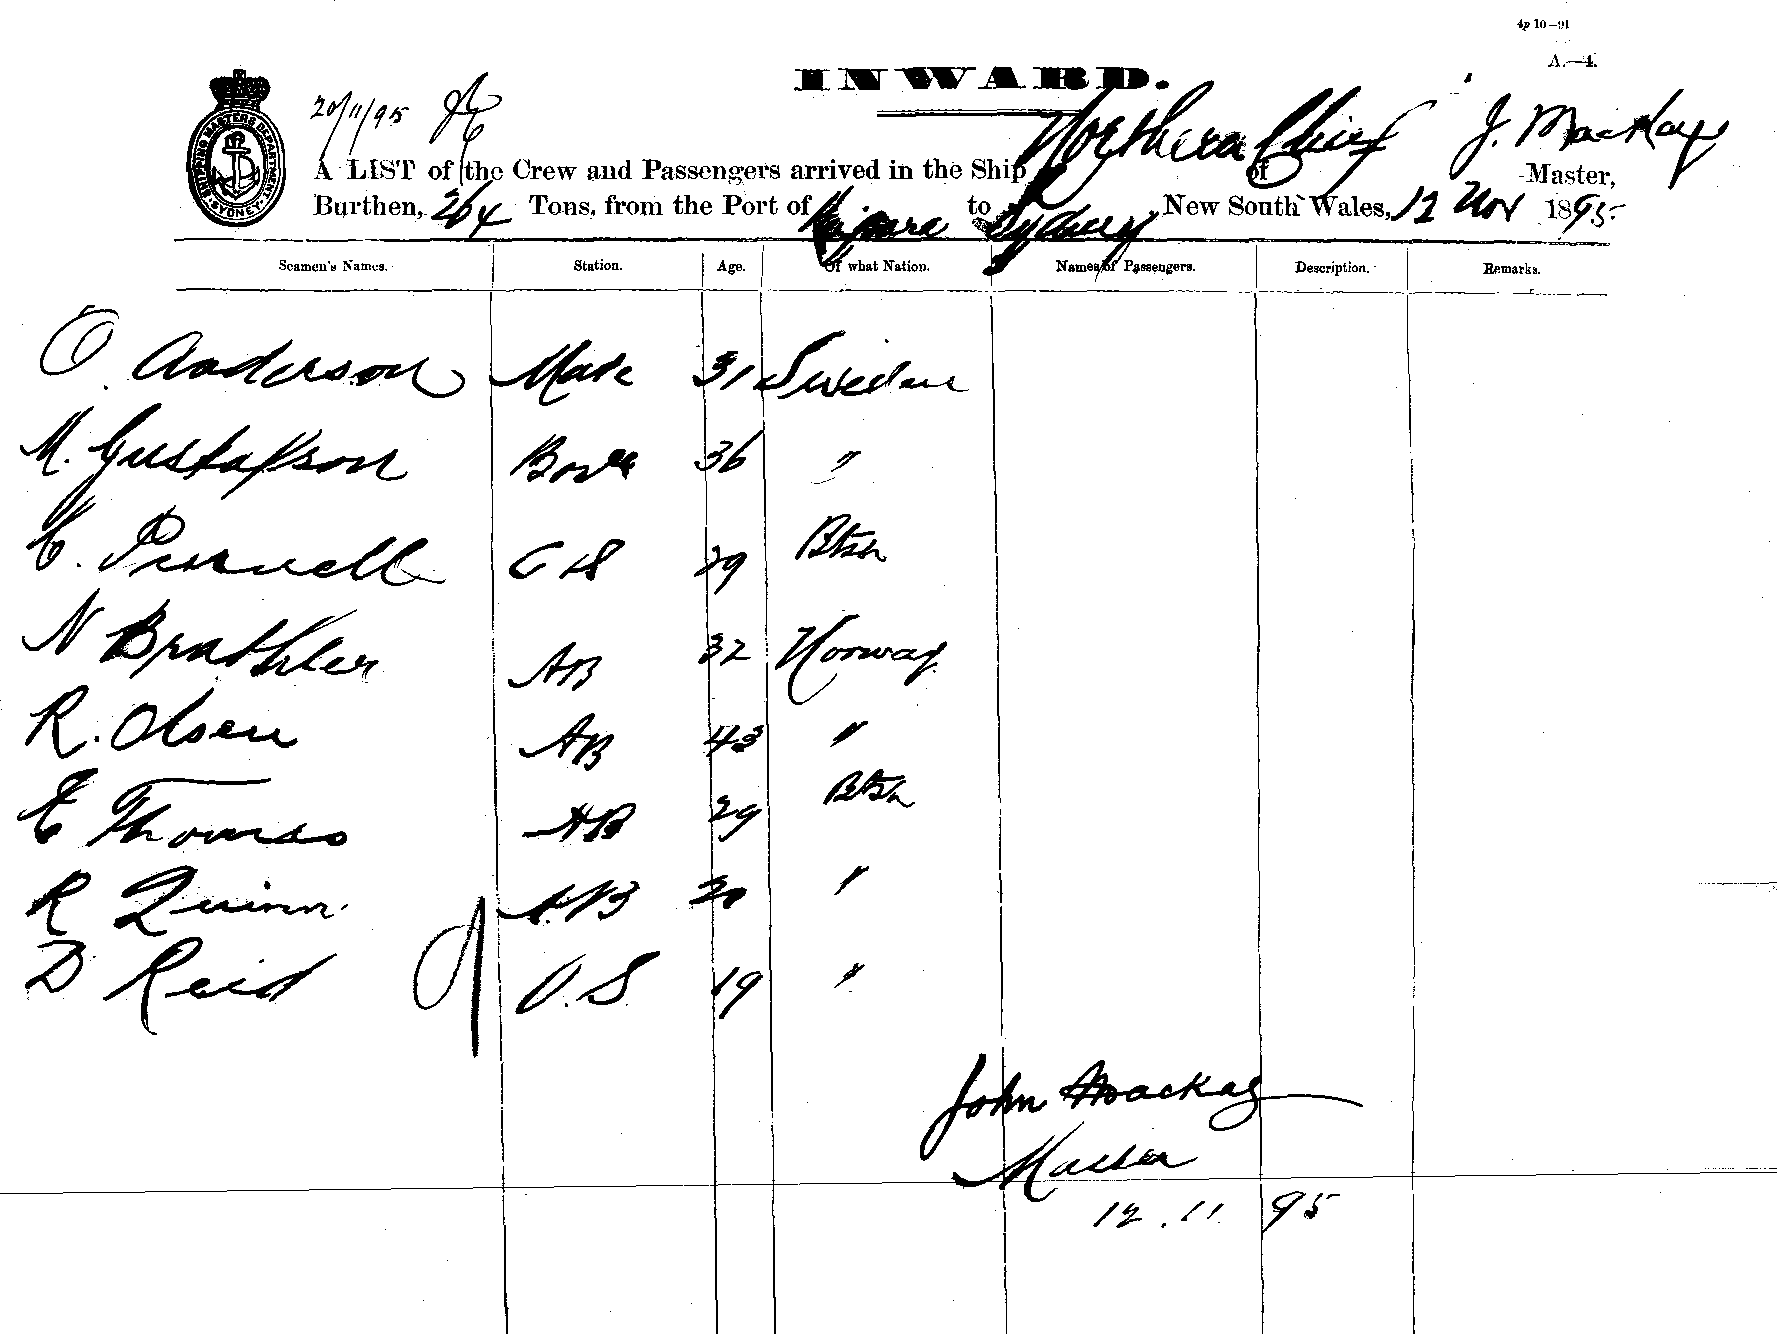 4p 10—91
A.—4.
INWARD.
20/11/95
SHIPPING MASTERS DEPARTMENT SYDNEY
A LIST of the Crew and Passengers arrived in the Ship Northern Chief of J. Mackay Master,
Burthen, 264 Tons, from the Port of Kaipara to Sydney, New South Wales, 12 Nov 1895
Seamen's Names. Station. Age. Of what Nation. Names of Passengers. Description. Remarks.
O. Anderson Mate 31 Sweden
M. Gustafson 36 "
C. Purnell C & S 29 Btsh
N AB 32 Norway
R. Olsen AB 43 "
E Thomas AB 29 Btsh
R Quinn AB 20 "
D Reid O.S. 19 "
John Mackay
Master
12.11 95